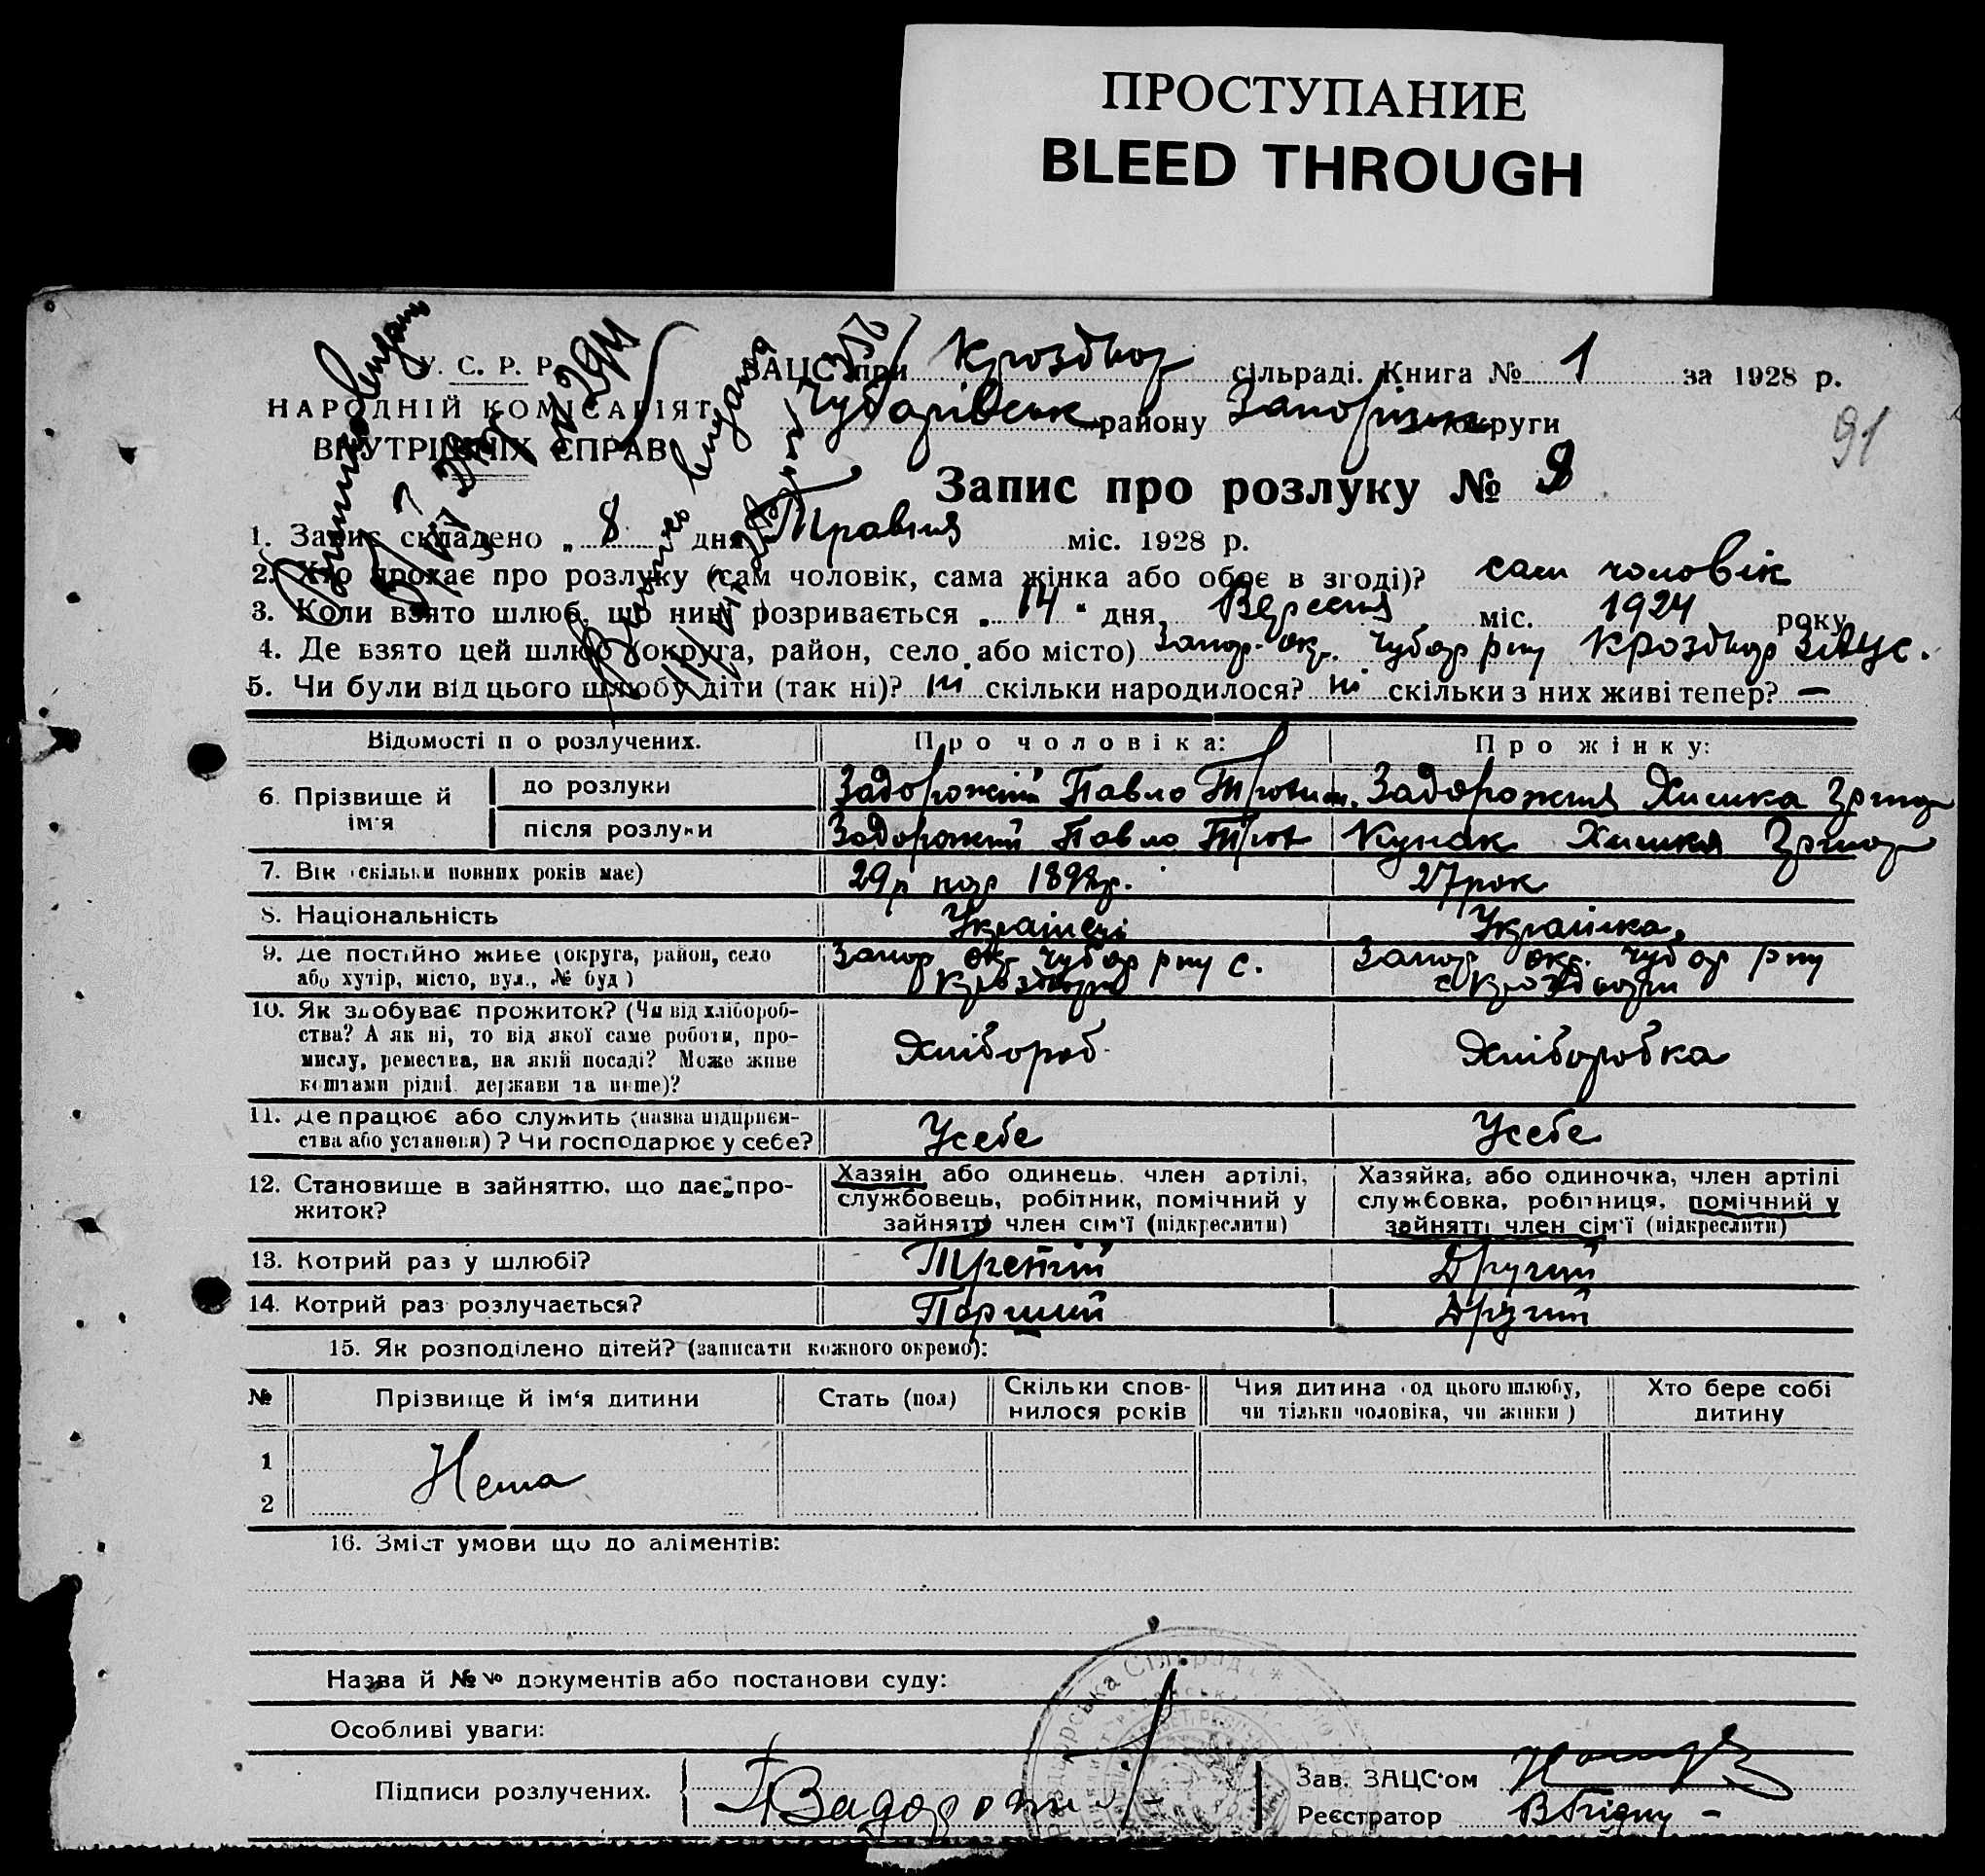 ПРОСТУПАНИЕ
BLEED THROUGH
У. С. Р. Р.
НАРОДНІЙ КОМІСАРІЯТ
ВНУТРІШНІХ СПРАВ
ЗАЦС при Кроздвор сільраді. Книга № 1 за 1928 р.
Чубарівськ району Запоріжж округи
91
Запис про розлуку № 8
1. Запис складено „ 8 дня Травня міс. 1928 р.
2. Хто прохає про розлуку (сам чоловік, сама жінка або обоє в згоді)? сам чоловік
3. Коли взято шлюб, що нині розривається „ 14 " дня Вересня міс. 1924 року
4. Де взято цей шлюб (округа, район, село або місто) Запор. ок. Чубар рну Кроздвор ЗАЦС.
5. Чи були від цього шлюбу діти (так ні)? ні скільки народилося? ні скільки з них живі тепер? —
Відомості п о розлучених. Про чоловіка: Про жінку:
6. Прізвище й ім'я
до розлуки Задорожній Павло Трохим. Задорожня Химка
після розлуки Задорожній Павло Трох Кунак Химка
7. Вік (скільки повних років має) 29р 27 рок
8. Національність Українець Українка
9. Де постійно живе (округа, район, село
або хутір, місто, вул., № буд)
Запор ок. Чубар рну с. Запор окр. Чубар рну
10. Як здобуває прожиток? (Чи від хлібороб-
ства? А як ні, то від якої саме роботи, про-
мислу, ремества, на якій посаді? Може живе
коштами рідні, держави та инше)?
Хлібороб Хліборобка
11. Де працює або служить (назва підприєм-
ства або установи)? Чи господарює у себе?
Усебе Усебе
12. Становище в зайняттю, що дає про-
житок?
Хазяін або одинець, член артілі,
службовець, робітник, помічний у
зайнятті член сім'ї (підкреслити)
Хазяйка, або одиночка, член артілі
службовка, робітниця, помічний у
зайнятті член сім'ї (підкреслити)
13. Котрий раз у шлюбі? Третій Другий
14. Котрий раз розлучається? Перший Другий
15. Як розподілено дітей? (записати кожного окремо):
№ Прізвище й ім'я дитини Стать (пол) Скільки спов-
нилося років Чия дитина (од цього шлюбу,
чи тільки чоловіка, чи жінки) Хто бере собі
дитину
1
Нема
2
16. Зміст умови що до аліментів:
Назва й №№ документів або постанови суду:
Особливі уваги:
Підписи розлучених.
Зав. ЗАЦС'ом
Реєстратор